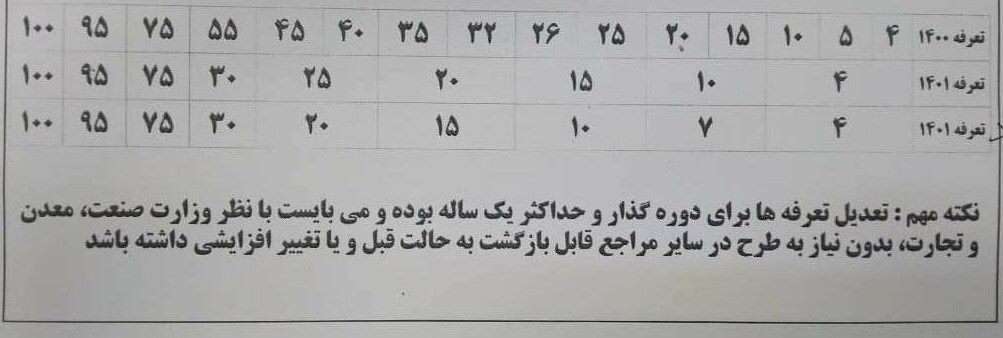 تعرفه ۱۴۰۰ ۴ ۵ ۱۰ ۱۵ ۲۰ ۲۵ ۲۶ ۳۲ ۳۵ ۴۰ ۴۵ ۵۵ ۷۵ ۹۵ ۱۰۰
تعرفه ۱۴۰۱ ۴ ۱۰ ۱۵ ۲۰ ۲۵ ۳۰ ۷۵ ۹۵ ۱۰۰
تعرفه ۱۴۰۱ ۴ ۷ ۱۰ ۱۵ ۲۰ ۳۰ ۷۵ ۹۵ ۱۰۰
نکته مهم : تعدیل تعرفه ها برای دوره گذار و حداکثر یک ساله بوده و می بایست با نظر وزارت صنعت، معدن
و تجارت، بدون نیاز به طرح در سایر مراجع قابل بازگشت به حالت قبل و یا تغییر افزایشی داشته باشد